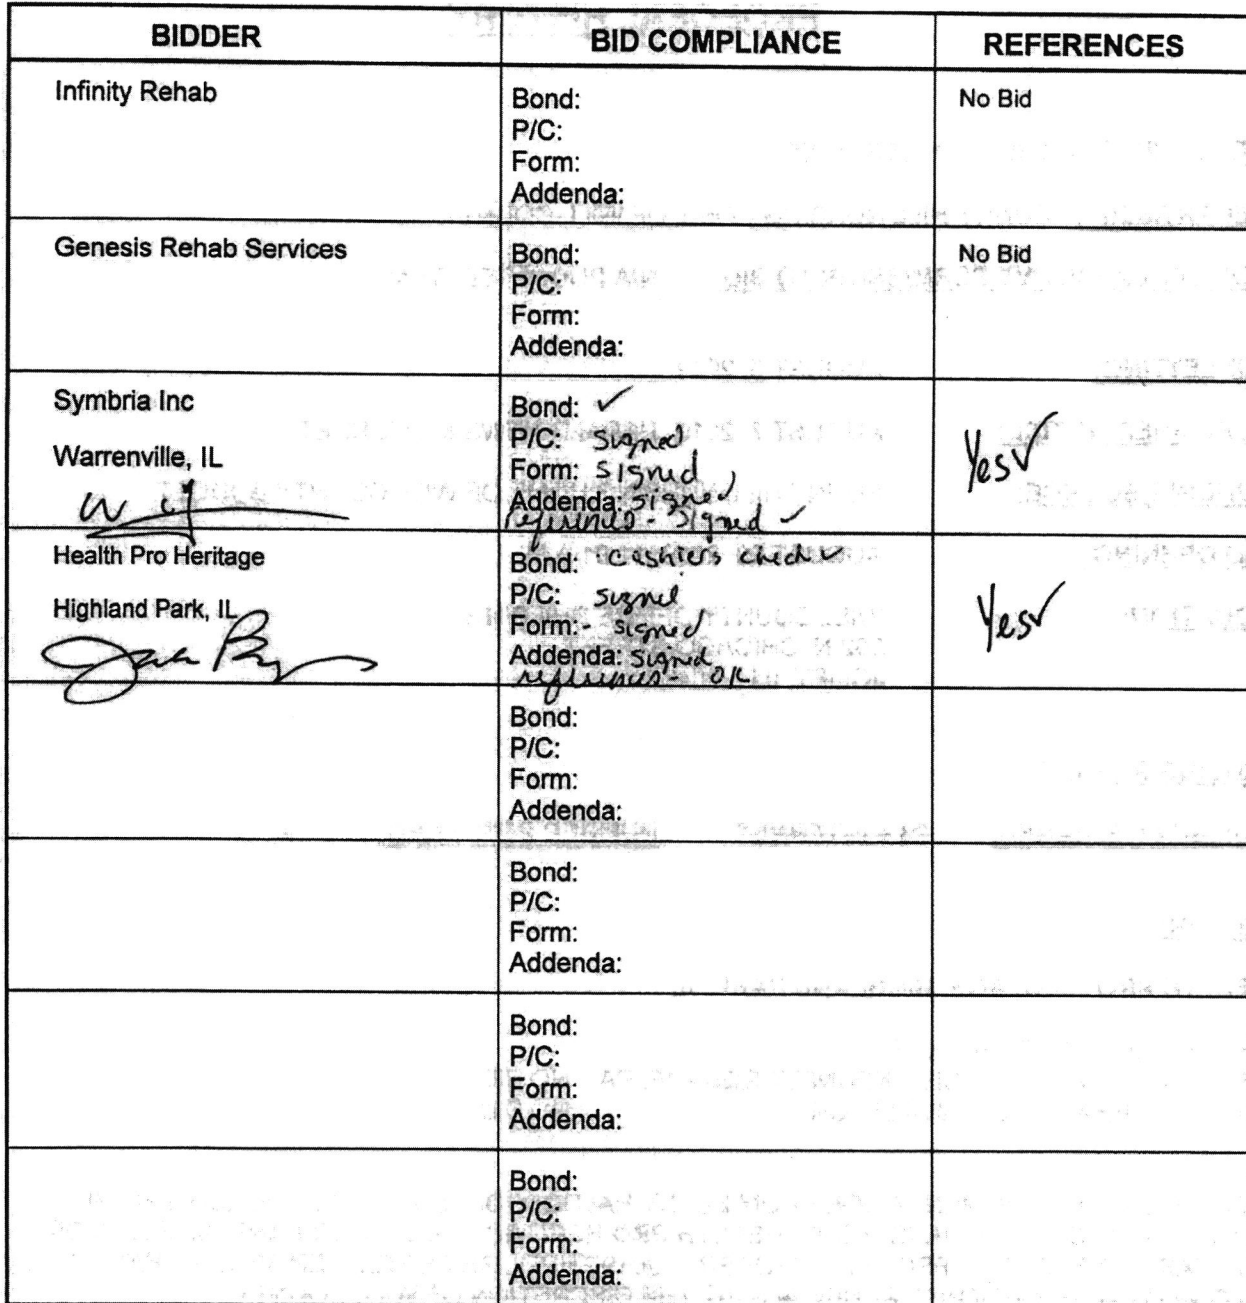 BIDDER
BID COMPLIANCE
REFERENCES
Infinity Rehab
Bond:
P/C:
Form:
Addenda:
No Bid
Genesis Rehab Services
Bond:
P/C:
Form:
Addenda:
No Bid
Symbria Inc
Warrenville, IL
Bond: ✓
P/C: signed
Form: signed
Addenda: signed
references - signed ✓
Yes✓
Health Pro Heritage
Highland Park, IL
Bond: cashiers check ✓
P/C: signed
Form: - signed
Addenda: signed
references - OK
Yes✓
Bond:
P/C:
Form:
Addenda:
Bond:
P/C:
Form:
Addenda:
Bond:
P/C:
Form:
Addenda:
Bond:
P/C:
Form:
Addenda: